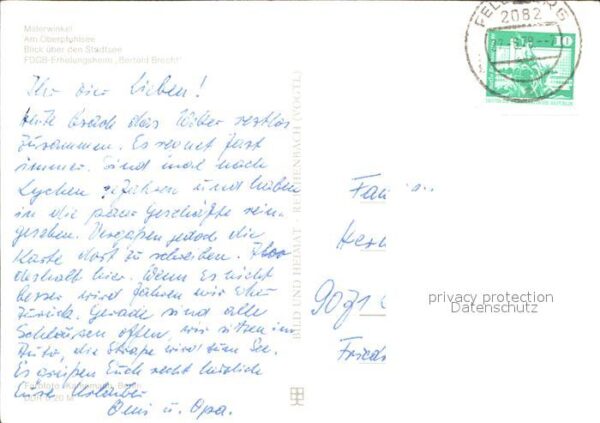 Malerwinkel
Am Oberpfuhlsee
Blick über den Stadtsee
FDGB-Erholungsheim „Bertold Brecht"
FELDBERG
2082
10
Ihr vier Lieben!
Heute brach das Wetter restlos
zusammen. Es regnet fast
immer. Sind mal nach
Lychen gefahren und haben
in die paar Geschäfte rein-
gesehen. Vergaßen jedoch die
Karte dort zu schreiben. Also
deshalb hier. Wenn es nicht
besser wird fahren wir eher
zurück. Gerade sind alle
Schleusen offen, wir sitzen im
Auto, die Straße wird zum See.
Es grüßen Euch recht herzlich
Eure Urlauber
Omi u. Opa.
BILD UND HEIMAT · REICHENBACH (VOGTL)
Fam
Her
9071
Fried
privacy protection
Datenschutz
DDR 0,20 M